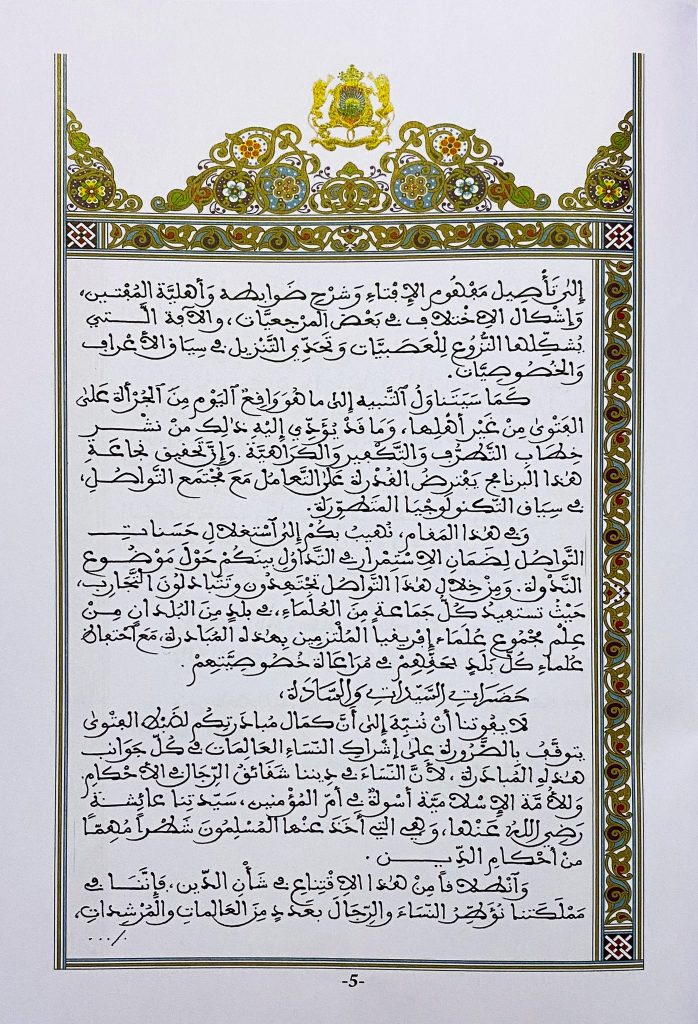 إلى تَأْصِيل مَفْهُوم الإِفْتَاءِ وَشَرْحِ ضَوَابِطِهِ وَأَهْلِيَّة المُفْتِين،
وَإِشْكَال الاِخْتِلَافِ فِي بَعْض المَرْجِعِيَّاتِ، وَالآفَة الَّتِي
يُشَكِّلُهَا النُّزُوعُ لِلْعَصَبِيَّاتِ وَتَحَدِّي التَّنْزِيل فِي سِيَاقِ الأَعْرَافِ
وَالخُصُوصِيَّاتِ.
كَمَا سَيَتَنَاوَلُ التَّنْبِيه إِلَى مَا هُوَ وَاقِعٌ اليَوْم مِنَ الجُرْأَة عَلَى
الفَتْوَى مِنْ غَيْرِ أَهْلِهَا، وَمَا قَدْ يُؤَدِّي إِلَيْهِ ذَلِكَ مِنْ نَشْرِ
خِطَابِ التَّطَرُّفِ وَالتَّكْفِيرِ وَالكَرَاهِيَّة. وَإِنَّ تَحْقِيقَ نَجَاعَةِ
هَذَا البَرْنَامَجِ يَفْتَرِضُ القُدْرَة عَلَى التَّعَامُل مَعَ مُجْتَمَع التَّوَاصُل،
فِي سِيَاقِ التِّكْنُولُوجْيَا المُتَطَوِّرَة.
وَفِي هَذَا المَقَام، نُهِيبُ بِكُمْ إِلَى اسْتِغْلَالِ حَسَنَاتِ
التَّوَاصُل لِضَمَانِ الاِسْتِمْرَار فِي التَّدَاوُل بَيْنَكُمْ حَوْلَ مَوْضُوع
النَّدْوَة. وَمِنْ خِلَالِ هَذَا التَّوَاصُل تَجْتَهِدُونَ وَتَتَبَادَلُونَ التَّجَارِبَ،
حَيْثُ تَسْتَفِيدُ كُلُّ جَمَاعَةٍ مِنَ العُلَمَاءِ، فِي بَلَدٍ مِنَ البُلْدَانِ مِنْ
عِلْمِ مَجْمُوعِ عُلَمَاءِ إِفْرِيقِيَا المُلْتَزِمِينَ بِهَذِهِ المُبَادَرَة، مَعَ احْتِفَاظِ
عُلَمَاءِ كُلِّ بَلَدٍ بِحَقِّهِمْ فِي مُرَاعَاة خُصُوصِيَّتِهِمْ.
حَضَرَاتِ السَّيِّدَاتِ وَالسَّادَة،
لَا يَفُوتُنَا أَنْ نُنَبِّهَ إِلَى أَنَّ كَمَالَ مُبَادَرَتِكُم لِضَبْطِ الفَتْوَى
يَتَوَقَّفُ بِالضَّرُورَة عَلَى إِشْرَاكِ النِّسَاءِ العَالِمَاتِ فِي كُلِّ جَوَانِب
هَذِهِ المُبَادَرَة، لِأَنَّ النِّسَاءَ فِي دِينِنَا شَقَائِقُ الرِّجَالِ فِي الأَحْكَامِ.
وَلِلأُمَّة الإِسْلَامِيَّة أُسْوَةٌ فِي أُمِّ المُؤْمِنِين، سَيِّدَتِنَا عَائِشَة
رَضِيَ اللهُ عَنْهَا، وَهِيَ الَّتِي أَخَذَ عَنْهَا المُسْلِمُونَ شَطْراً مُهِمّاً
مِنْ أَحْكَامِ الدِّين.
وَانْطِلَاقاً مِنْ هَذَا الاِقْتِنَاعِ فِي شَأْنِ الدِّين، فَإِنَّنَا فِي
مَمْلَكَتِنَا نُؤَطِّرُ النِّسَاءَ وَالرِّجَالَ بِعَدَدٍ مِنَ العَالِمَاتِ وَالمُرْشِدَاتِ،
/...
-5-